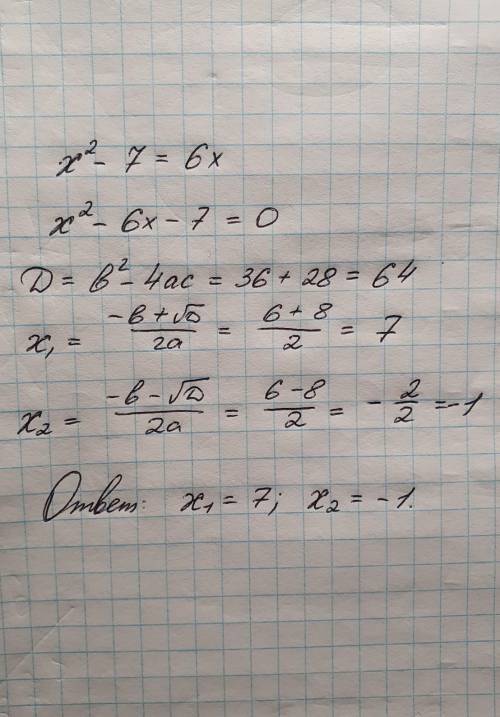 x² - 7 = 6x
x² - 6x - 7 = 0
D = b² - 4ac = 36 + 28 = 64
x₁ = (-b + √D)/2a = (6 + 8)/2 = 7
x₂ = (-b - √D)/2a = (6 - 8)/2 = -2/2 = -1
Ответ: x₁ = 7; x₂ = -1.